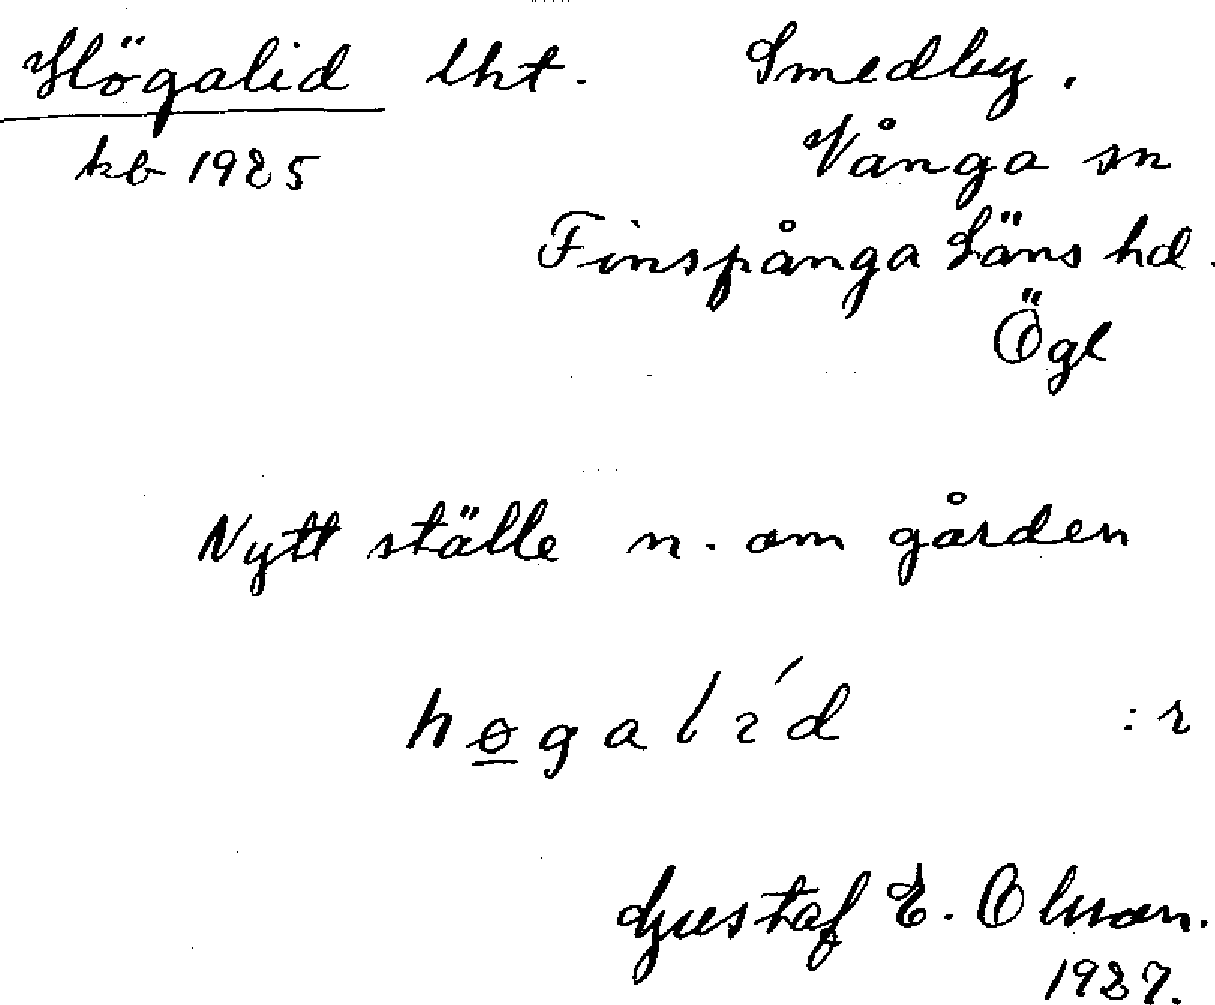 Högalid lht. Smedby.
kb 1925 Vånga sn
Finspånga Läns hd.
Ögl
Nytt ställe n. om gården
høgalı́d :r
Gustaf E. Olsson.
1927.